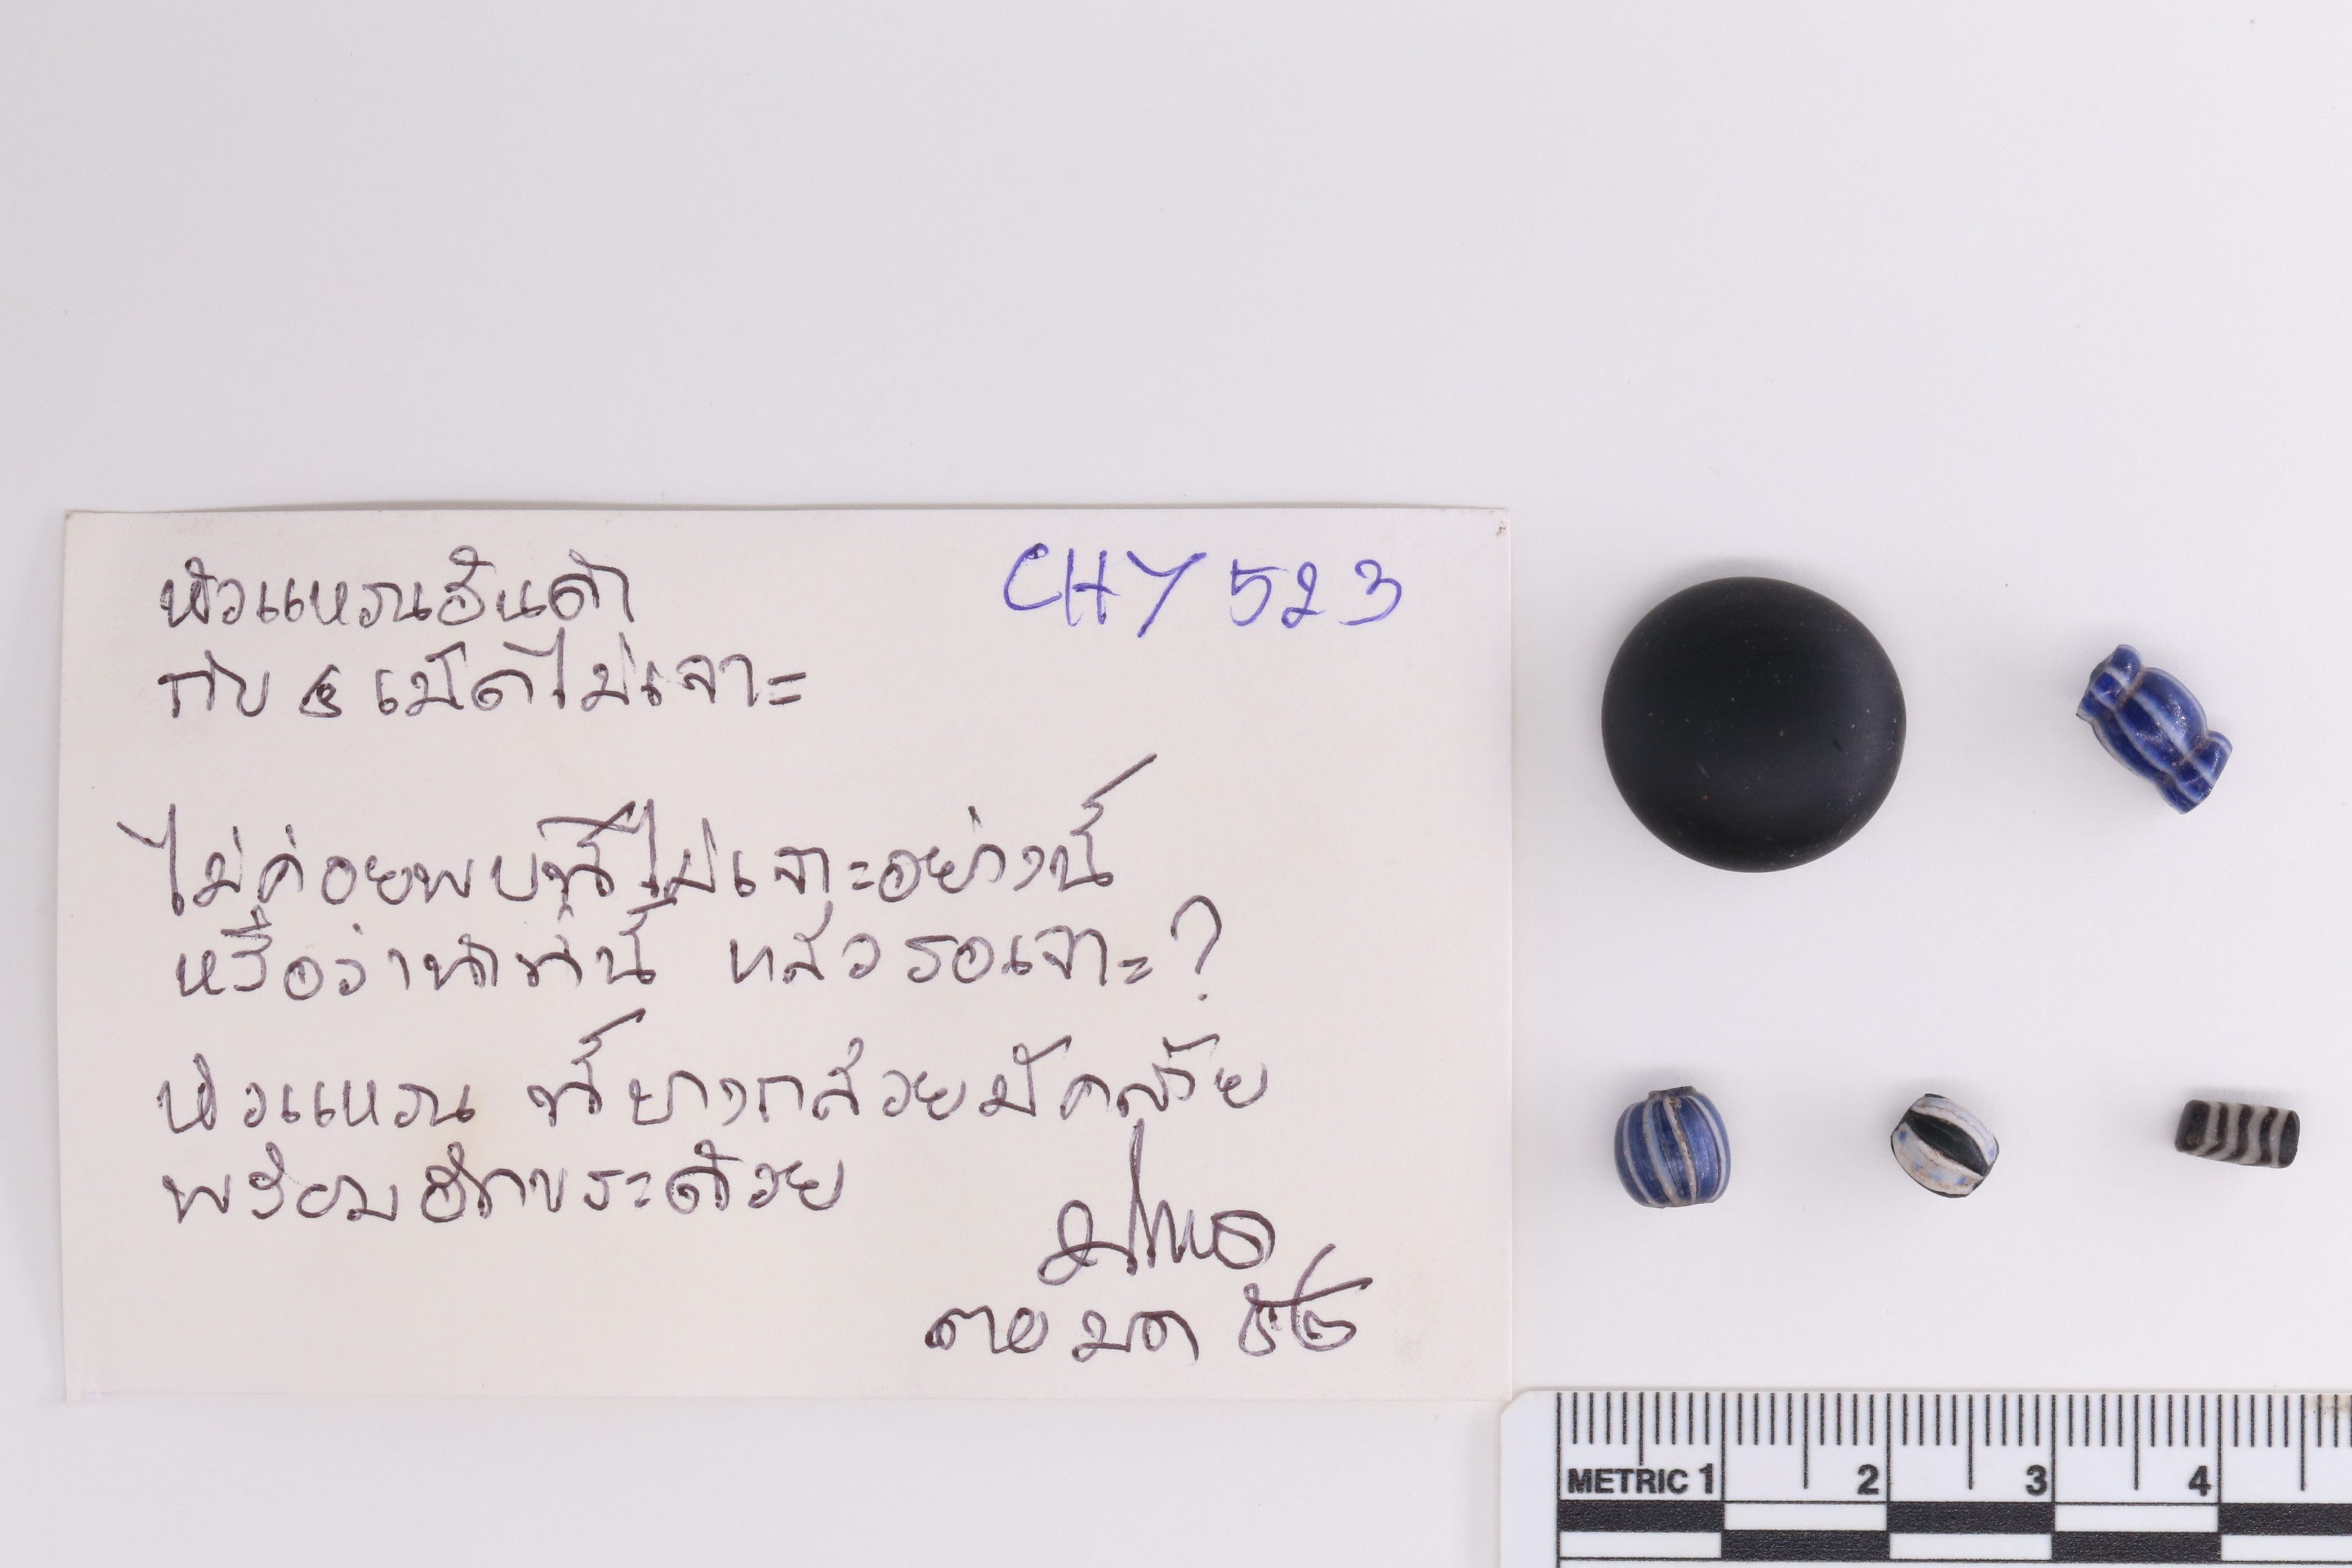 CHY 523
หัวแหวนอันดำ
กับ ๔ เม็ดไม่เจาะ
ไม่ค่อยพบที่ไม่เจาะอย่างนี้
หรือว่าทำที่นี่ แล้วรอเจาะ?
หัวแหวน ที่บางกล้วยมีคล้าย
พร้อมอักขระด้วย
METRIC 1 2 3 4